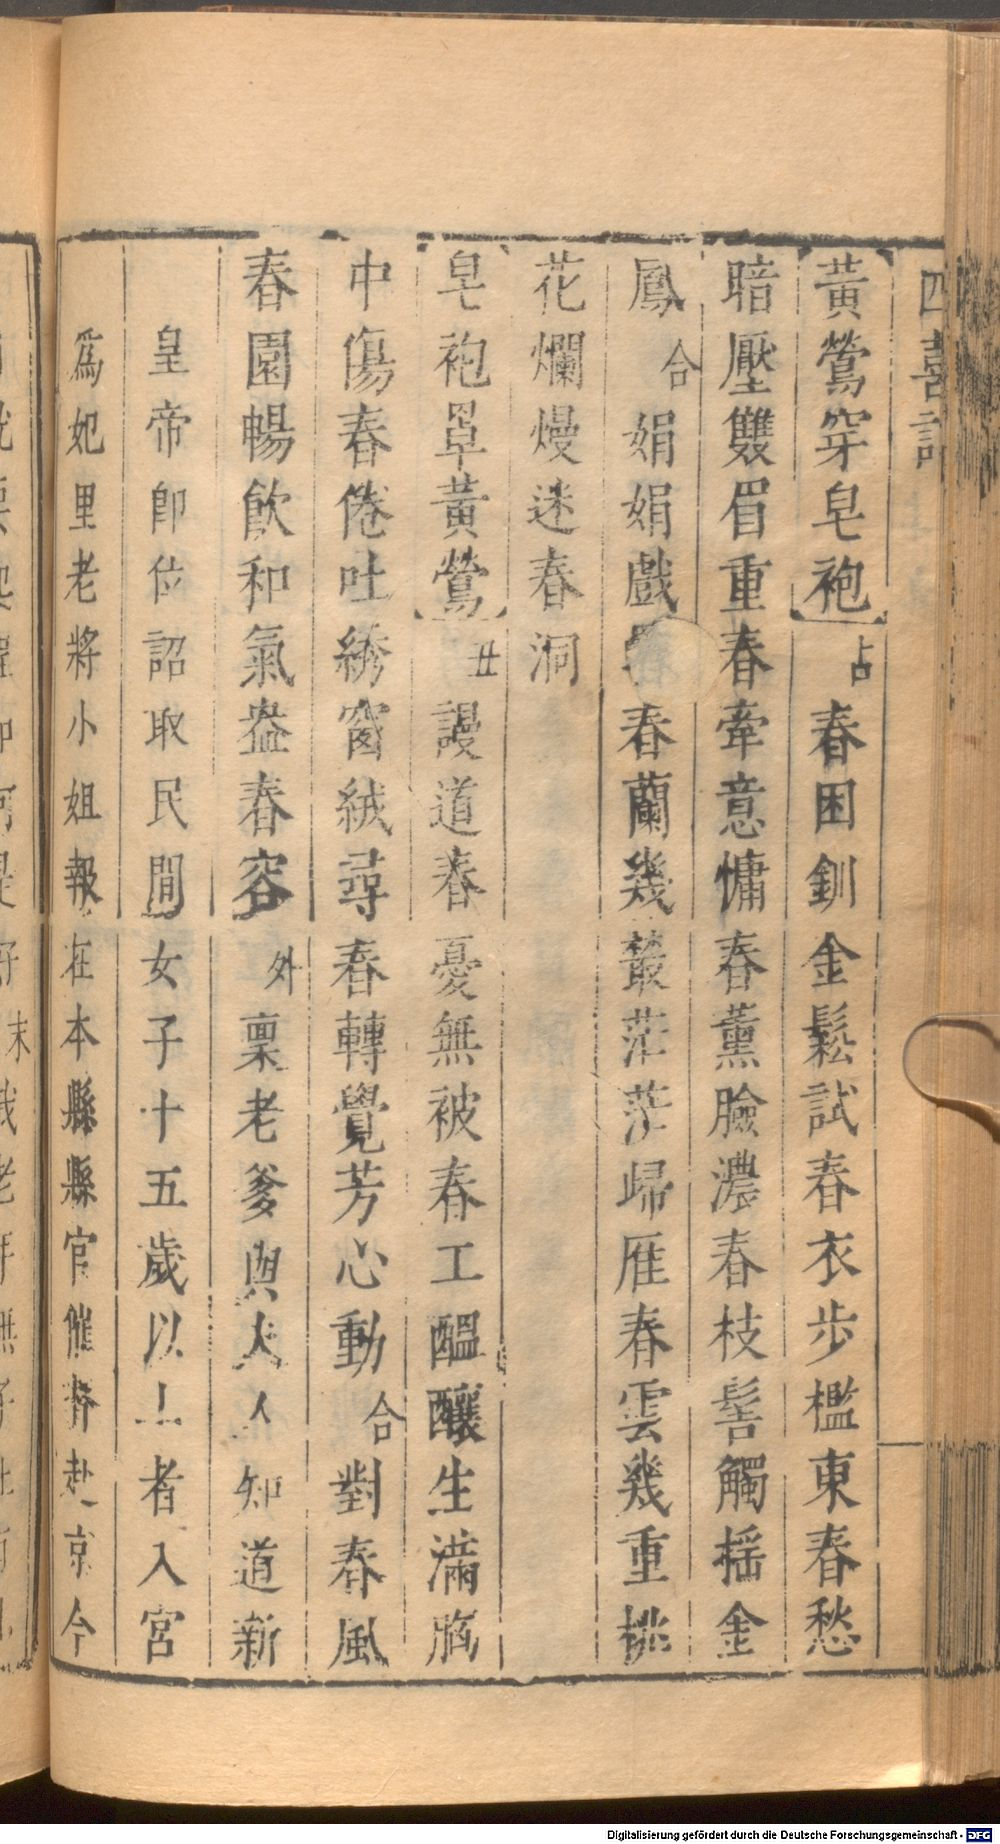 四喜記
黃鶯穿皂袍 占 春困釧金鬆試春衣步檻東春愁
暗壓雙眉重春牽意慵春薰臉濃春枝髻觸搖金
鳳 合 娟娟戲春蘭幾叢茫茫歸雁春雲幾重桃
花爛熳迷春洞
皂袍罩黃鶯 丑 謾道春憂無被春工醞釀生滿胸
中傷春倦吐綉窗絨尋春轉覺芳心動 合 對春風
春園暢飲和氣盎春容 外 稟老爹與夫人知道新
皇帝即位詔取民間女子十五歲以上者入宮
為妃里老將小姐報在本縣縣官催督赴京今
Digitalisierung gefördert durch die Deutsche Forschungsgemeinschaft - DFG